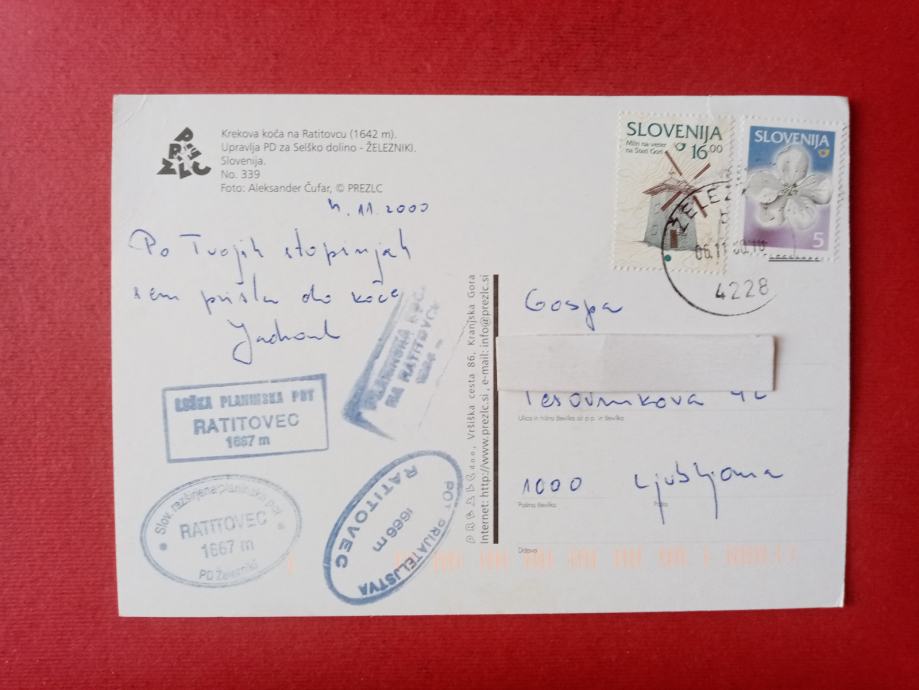 PREZLC
Krekova koča na Ratitovcu (1642 m).
Upravlja PD za Selško dolino - ŽELEZNIKI.
Slovenija.
No. 339
Foto: Aleksander Čufar, © PREZLC
4.11.2000
Po Tvojih stopinjah
sem prišla do koče
LOŠKA PLANINSKA POT
RATITOVEC
1667 m
Slov. razširjena planinska pot
RATITOVEC
1667 m
PD Železniki
PLANINSKA KOČA
NA RATITOVCU
POT PRIJATELJSTVA
1666 m
RATITOVEC
d.o.o., Vršiška cesta 86, Kranjska Gora
Internet: http://www.prezlc.si, e-mail: info@prezlc.si
SLOVENIJA
16.00
Mlin na veter
na Stari Gori
SLOVENIJA
5
ŽELEZ
06.11.00.10
4228
Gospa
Ulica in hišna številka ali p.p. in številka
1000 Ljubljana
Poštna številka
Pošta
Država